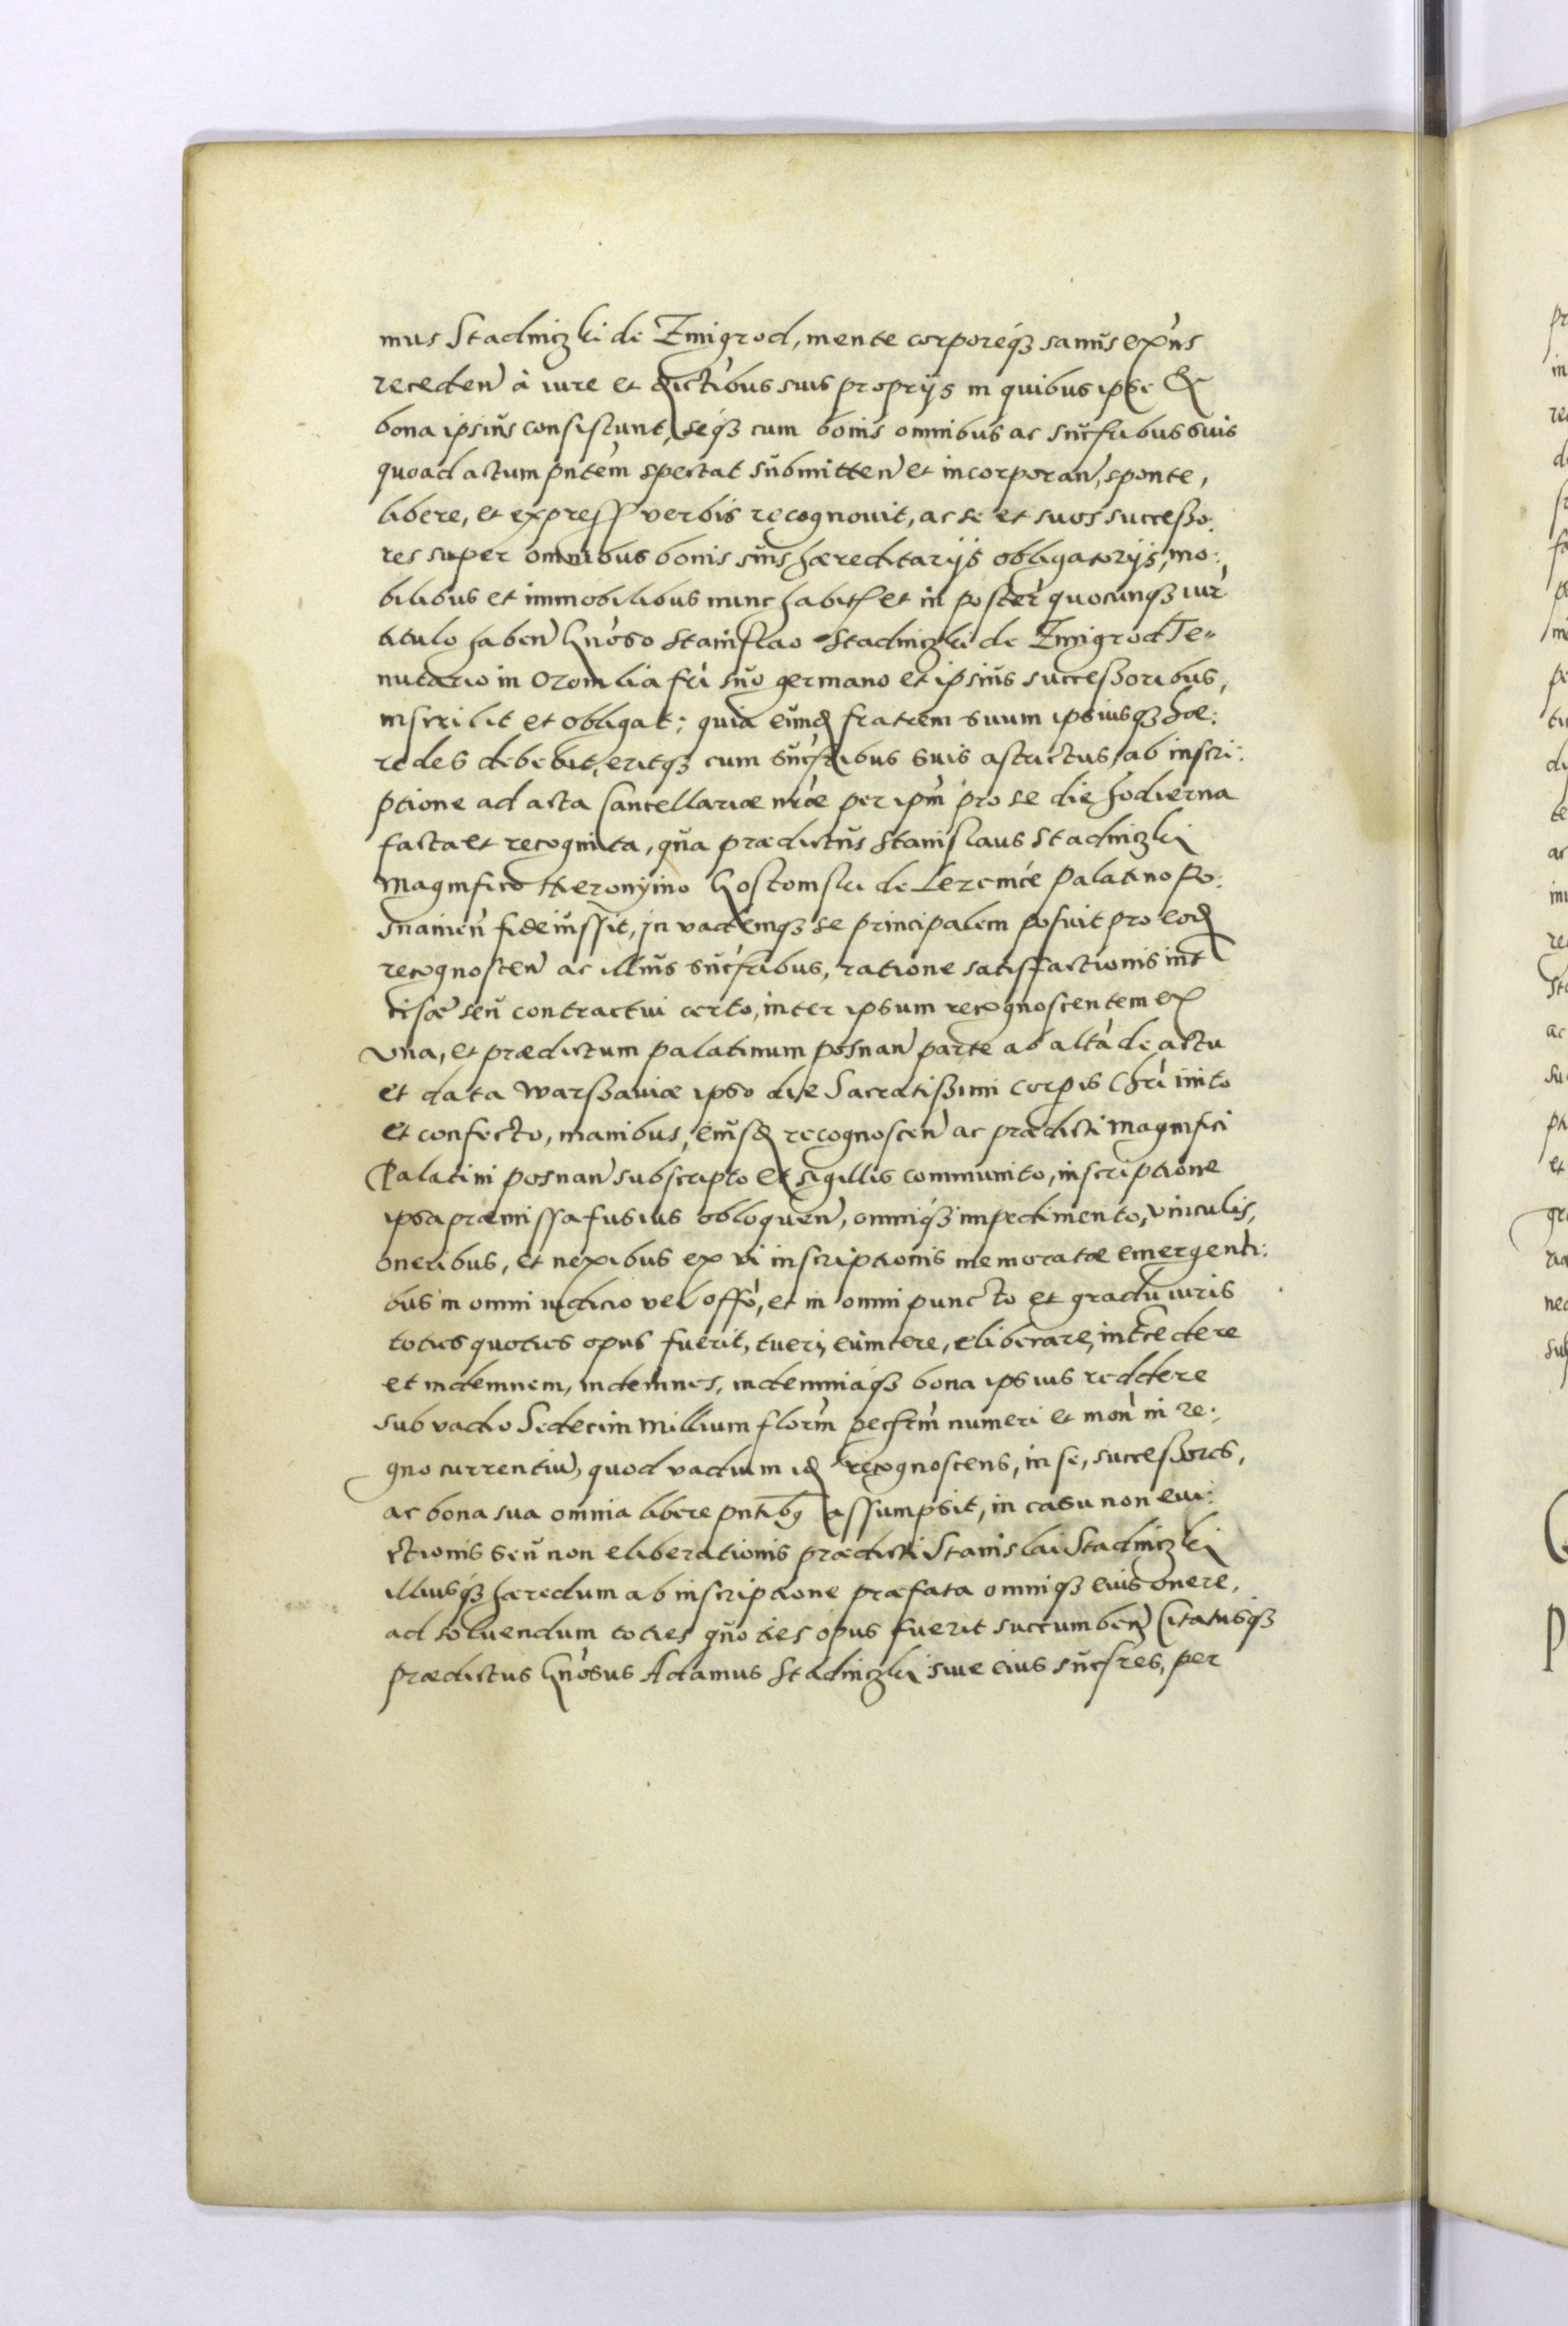 mus Stadniczki de Zmigrod, mente corporeq́ꝫ sanus exn̄s
receden̄ à iure et distibus suis proprijs in quibus ipse &
bona ipsius consistunt, seq́ꝫ cum bonis omnibus ac sucr̄ibus suis
quoad actum pn̄tem spectat submitten̄ et incorporan̄, sponte,
libere, et express̄ verbis recognouit, ac se et suos successo:
res super omnibus bonis suis hæreditarijs obligatorijs, mo:
bilibus et immobilibus nunc habit̄ et in poster̄ quocunqꝫ iur̄
titulo haben̄ Gn̄oso Stanislao Stadniczki de Zmigrod Te⸗
nutario in Ozomlia fr̄i suo germano et ipsius successoribus,
inscribit et obligat: quia eund̄ fratrem suum ipsiusqꝫ hæ:
redes debebit, eritqꝫ cum sucr̄ibus suis astrictus, ab inscri:
ptione ad acta Cancellariæ nr̄æ per ipm̄ pro se die hodierna
facta et recognita, qua prædictus Stanislaus Stadniczki
Magnifico Hieronymo Gostomski de Lezenice Palatino Po:
snanien̄ fideiussit, in vademqꝫ se principalem posuit pro eod̄
recognoscen̄ ac illius sucr̄ibus, ratione satisfactionis int̄
cisæ seu contractui certo, inter ipsum recognoscentem ex
vna, et prædictum palatinum posnan̄ parte ab altā de actu
et data Warssauiæ ipso die Sacratissimi Corpis Chr̄i inito
et confecto, manibus, eiusd̄ recognoscen̄ ac prædicti Magnifici
Palatini posnan̄ subscripto et sigillis communito, inscriptione
ipsa præmissa fusius obloquen̄, omniq́ꝫ impedimento, vinculis,
oneribus, et nexibus ex vi inscriptionis memoratæ emergenti:
bus in omni iudicio vel offō, et in omni puncto et gradu iuris
toties quoties opus fuerit, tueri, euincere, eliberare, int̄cedere
et indemnem, indemnes, indemniaqꝫ bona ipsius reddere
sub vadio Sedecim Millium florn̄ pecn̄m numeri et mon̄ in re:
gno currentiū, quod vadium id̄ recognoscens, in se, successores,
ac bona sua omnia libere pn̄tibꝫ assumpsit, in casu non eui:
ctionis seu non eliberationis prædicti Stanislai Stadniczki
illiusq́ꝫ hæredum ab inscriptione præfata omniqꝫ eius onere,
ad soluendum toties quoties opus fuerit succumben̄ Citatusqꝫ
prædictus Gn̄osus Adamus Stadniczki siue eius sucr̄es, per